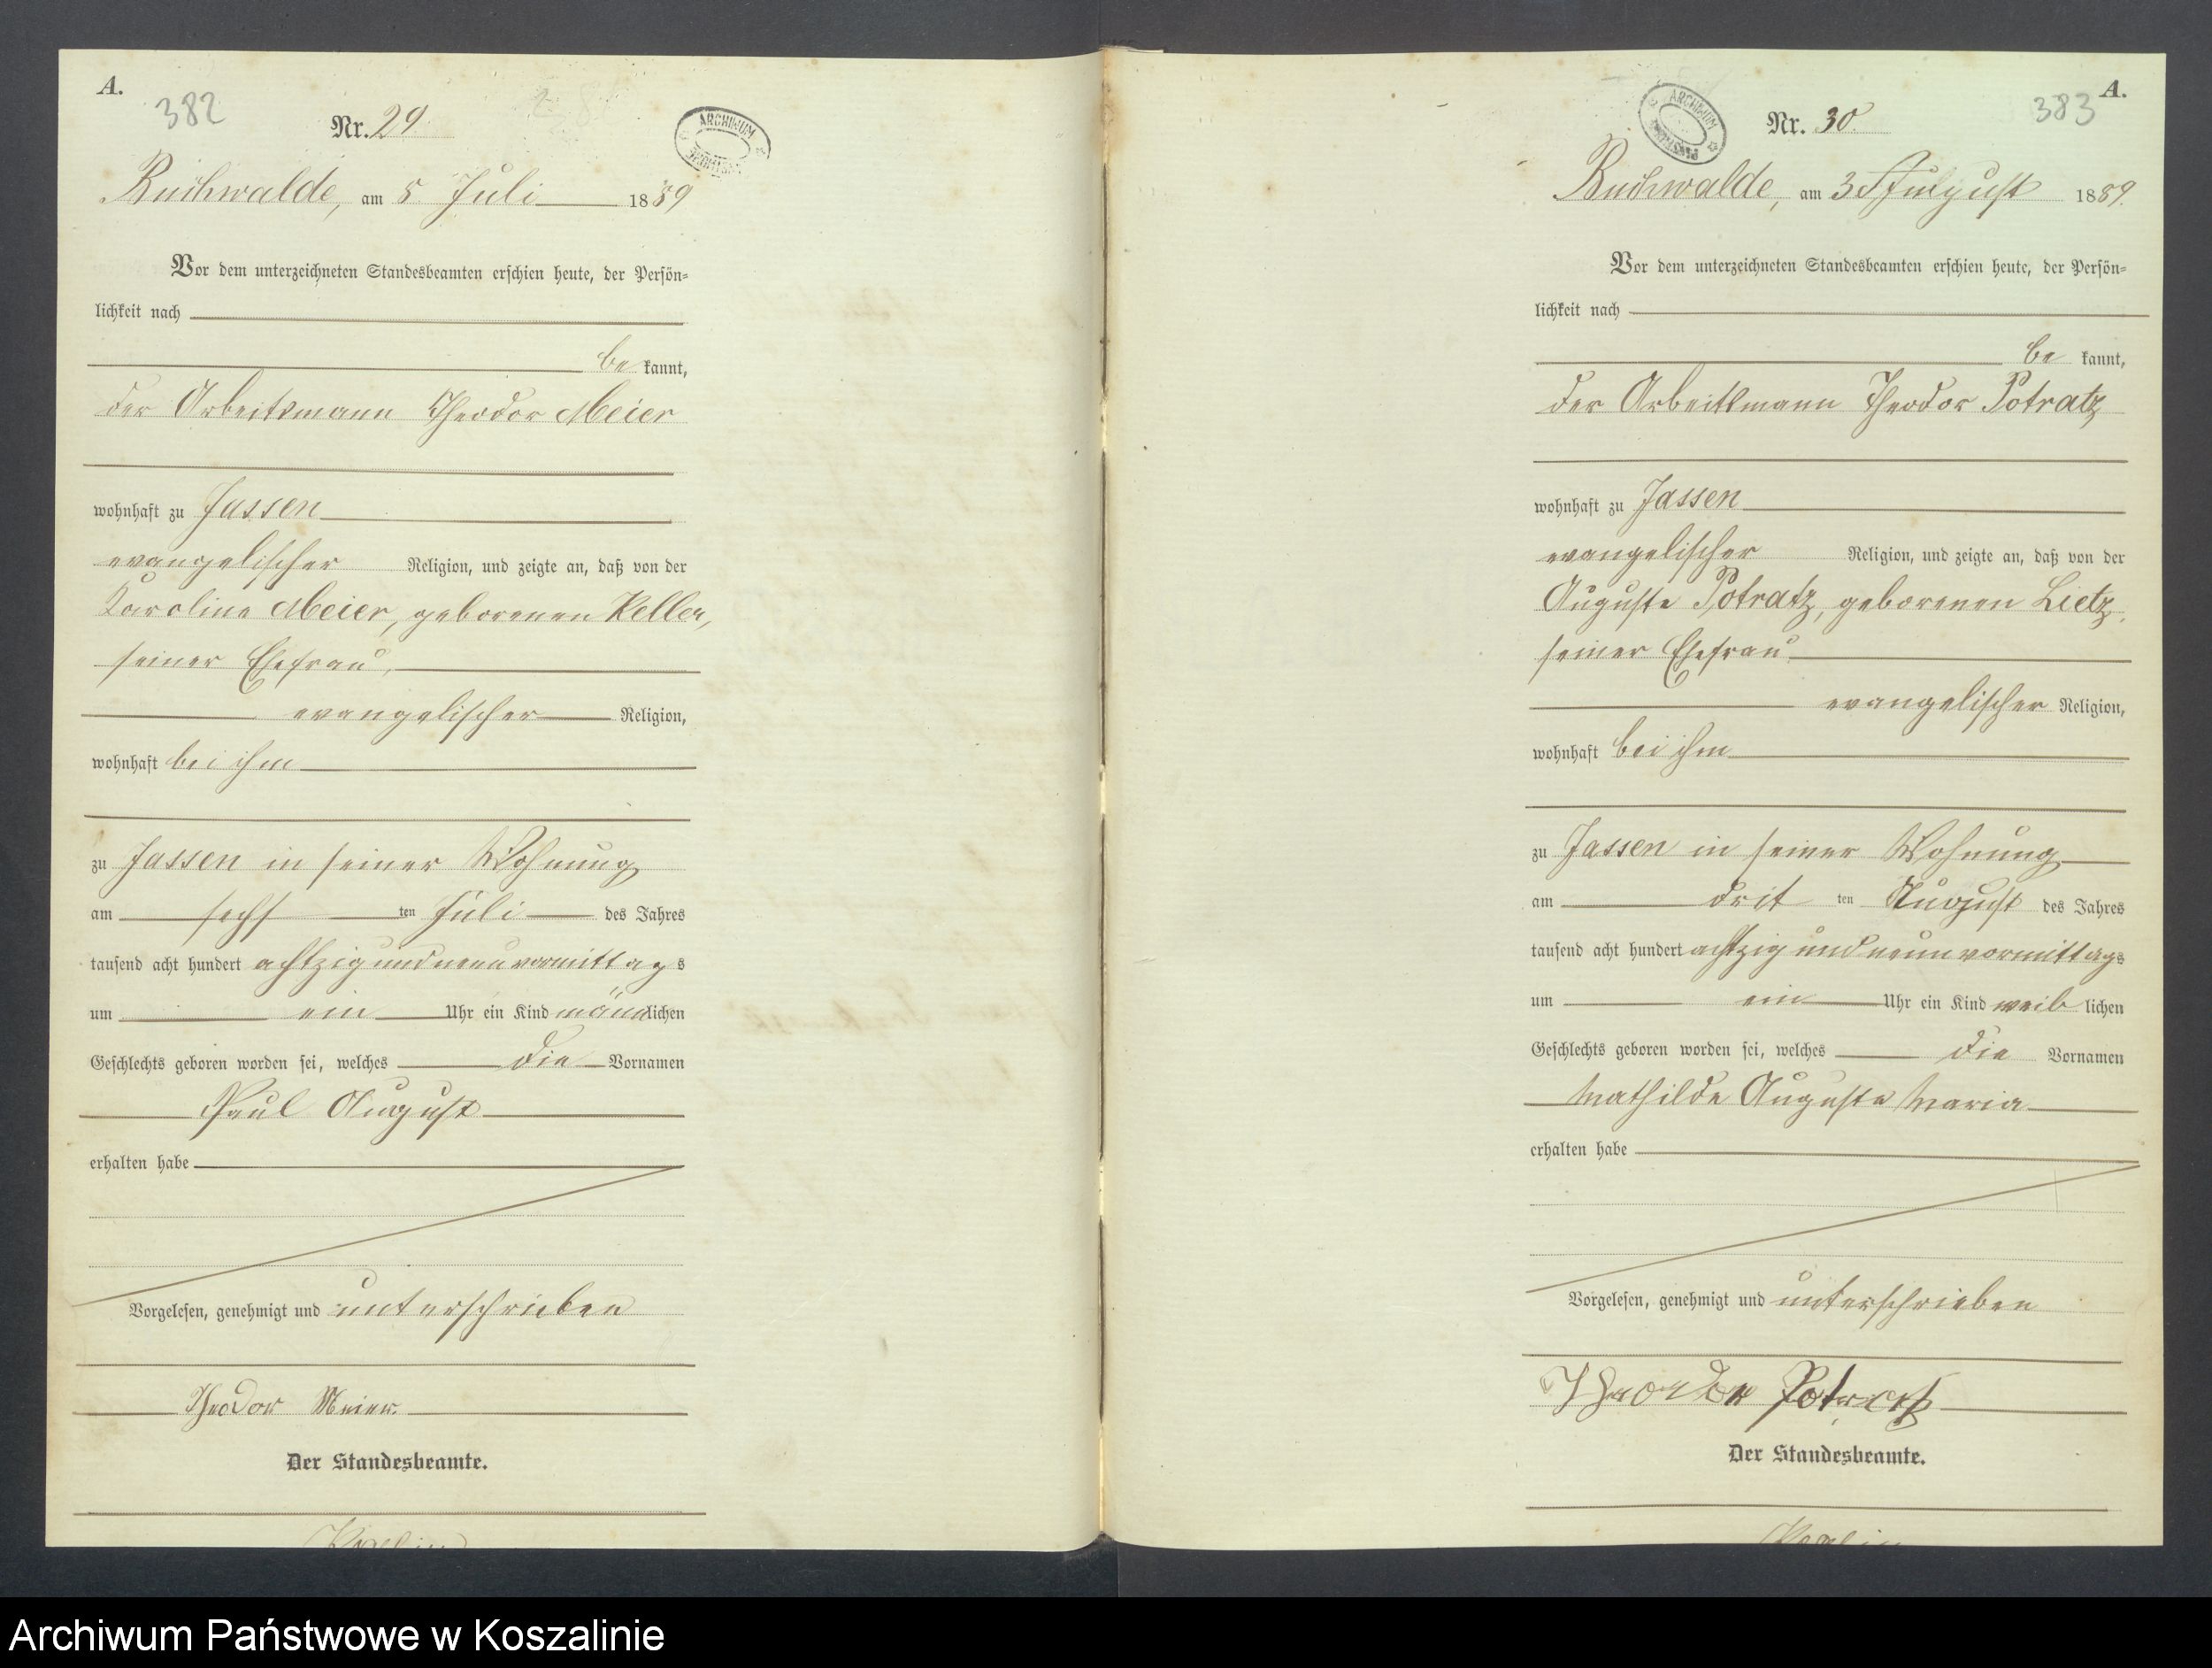 A.
382
Nr. 29
ARCHIWUM
Buchwalde, am 8 Juli 1889
Vor dem unterzeichneten Standesbeamten erschien heute, der Persön=
lichkeit nach
be kannt,
der Arbeitsmann Theodor Meier
wohnhaft zu Jassen
evangelischer Religion, und zeigte an, daß von der
Karoline Meier, geborenen Keller,
seiner Ehefrau,
evangelischer Religion,
wohnhaft bei ihm
zu Jassen in seiner Wohnung
am sechs ten Juli des Jahres
tausend acht hundert achtzig und neun vormittags
um ein Uhr ein Kind männlichen
Geschlechts geboren worden sei, welches die Vornamen
Paul August
erhalten habe
Vorgelesen, genehmigt und unterschrieben
Theodor Meier.
Der Standesbeamte.
A.
383
Nr. 30.
ARCHIWUM
Buchwalde, am 3 August 1889.
Vor dem unterzeichneten Standesbeamten erschien heute, der Persön=
lichkeit nach
be kannt,
der Arbeitsmann Theodor Potratz
wohnhaft zu Jassen
evangelischer Religion, und zeigte an, daß von der
Auguste Potratz, geborenen Lietz,
seiner Ehefrau
evangelischer Religion,
wohnhaft bei ihm
zu Jassen in seiner Wohnung
am drit ten August des Jahres
tausend acht hundert achtzig und neun vormittags
um ein Uhr ein Kind weib lichen
Geschlechts geboren worden sei, welches die Vornamen
Mathilde Auguste Maria
erhalten habe
Vorgelesen, genehmigt und unterschrieben
Theodor Potratz
Der Standesbeamte.
Archiwum Państwowe w Koszalinie